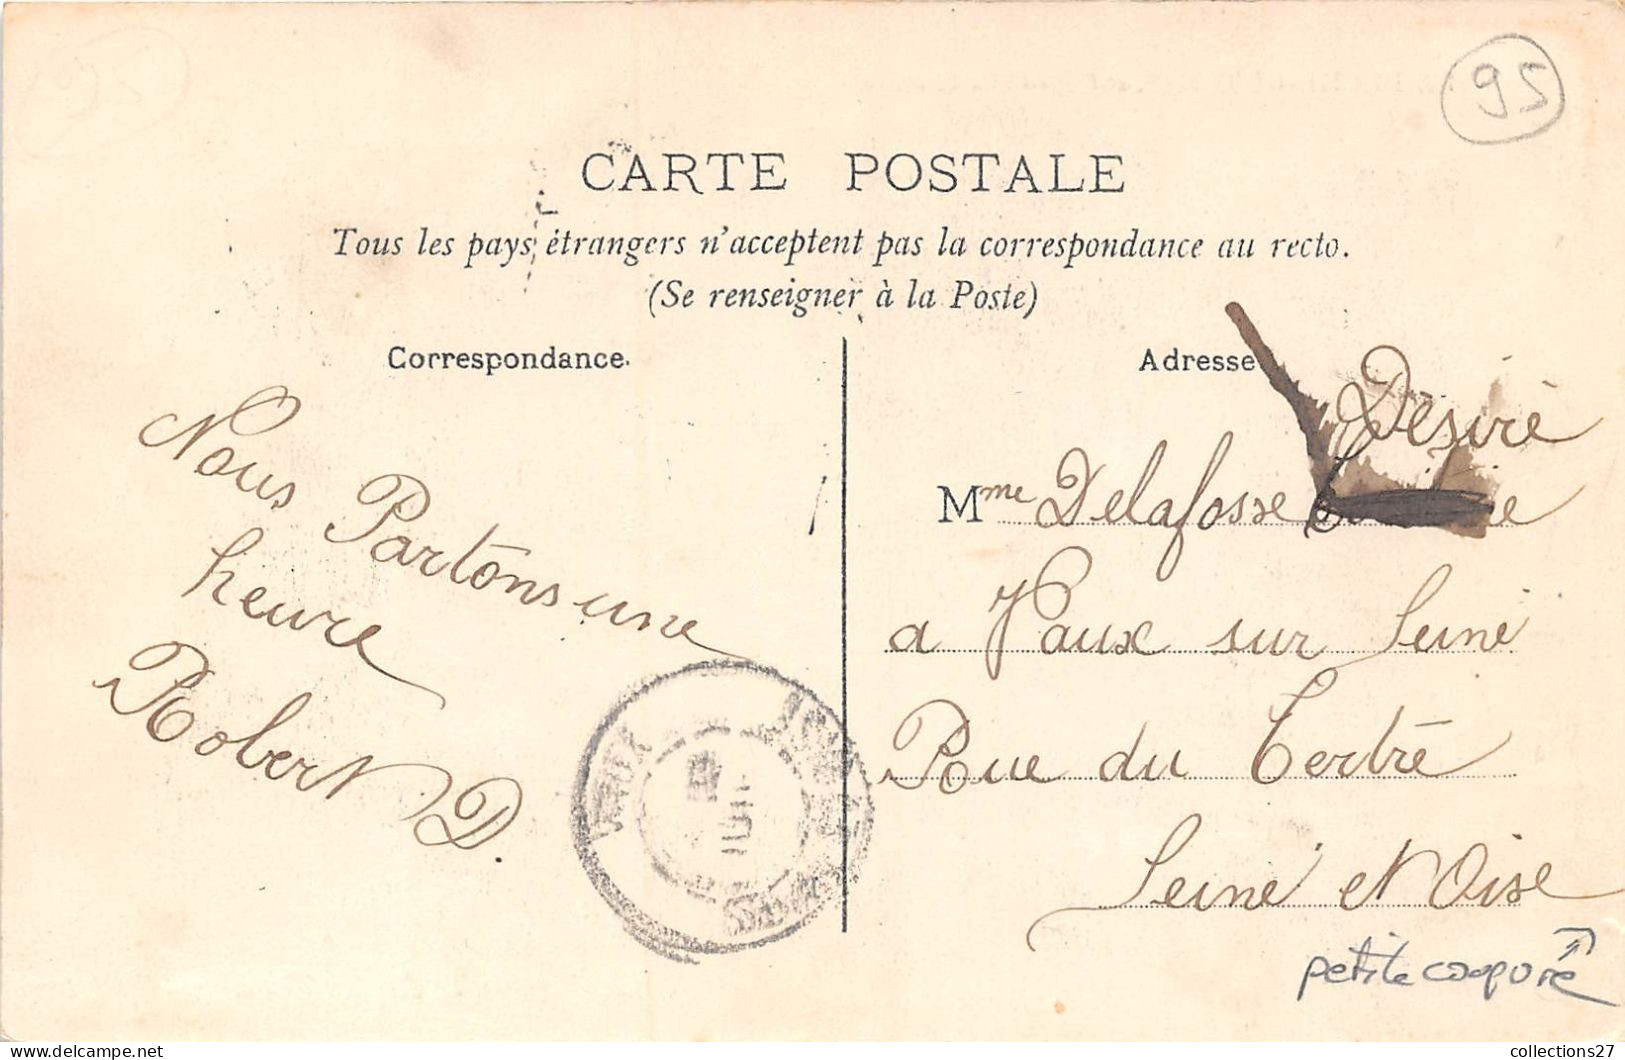 95
CARTE POSTALE
Tous les pays étrangers n'acceptent pas la correspondance au recto.
(Se renseigner à la Poste)
Correspondance.
Nous Partons une
heure
Robert D.
Adresse
Désiré
Mme Delafosse
a Vaux sur Seine
Rue du Tertre
Seine et Oise
petite coupure
VAUX
collections27